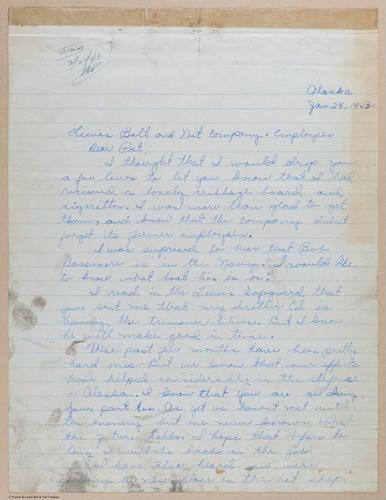 2/2/43
Alaska
Jan 28, 1943
Lewis Bolt and Nut Company + Employees
Dear Pat:
I thought that I would drop you
a few lines to let you know that I had
received a lovely cribbage board and
cigarettes. I was more than glad to get
them, and know that the company didn't
forget its former employees.
I was supprised to hear that Bob
is in the Navy. I would like
to know what boat his is on.
I read in the Lewis Safeguard that
you sent me that my brother Ed is
having the trimmer blues. But I know
he will make good in time.
These past few months have been pretty
hard ones. But we know that our efforts
have helped considerably in the defense
of Alaska. I know that you are all doing
your part too. As yet we havent met with
the enemy but one never knows what
the future holds. I hope that before to
long I will be back on the job
I have also heard you were
a new floor in the nut shop.